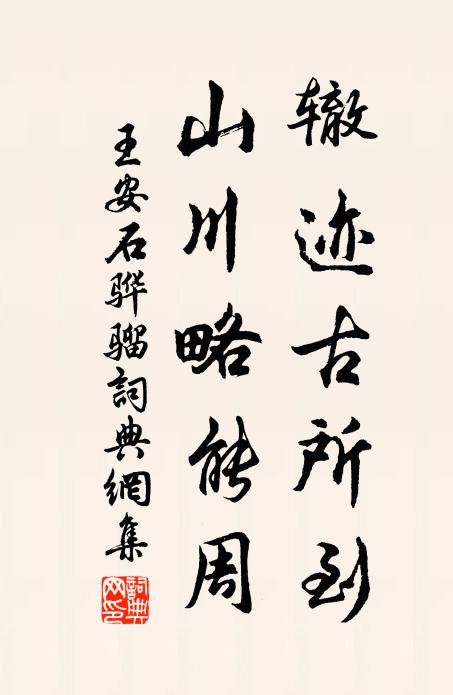 辙迹古所到
山川略能周
王安石骅骝詞典網集
詞典
网印